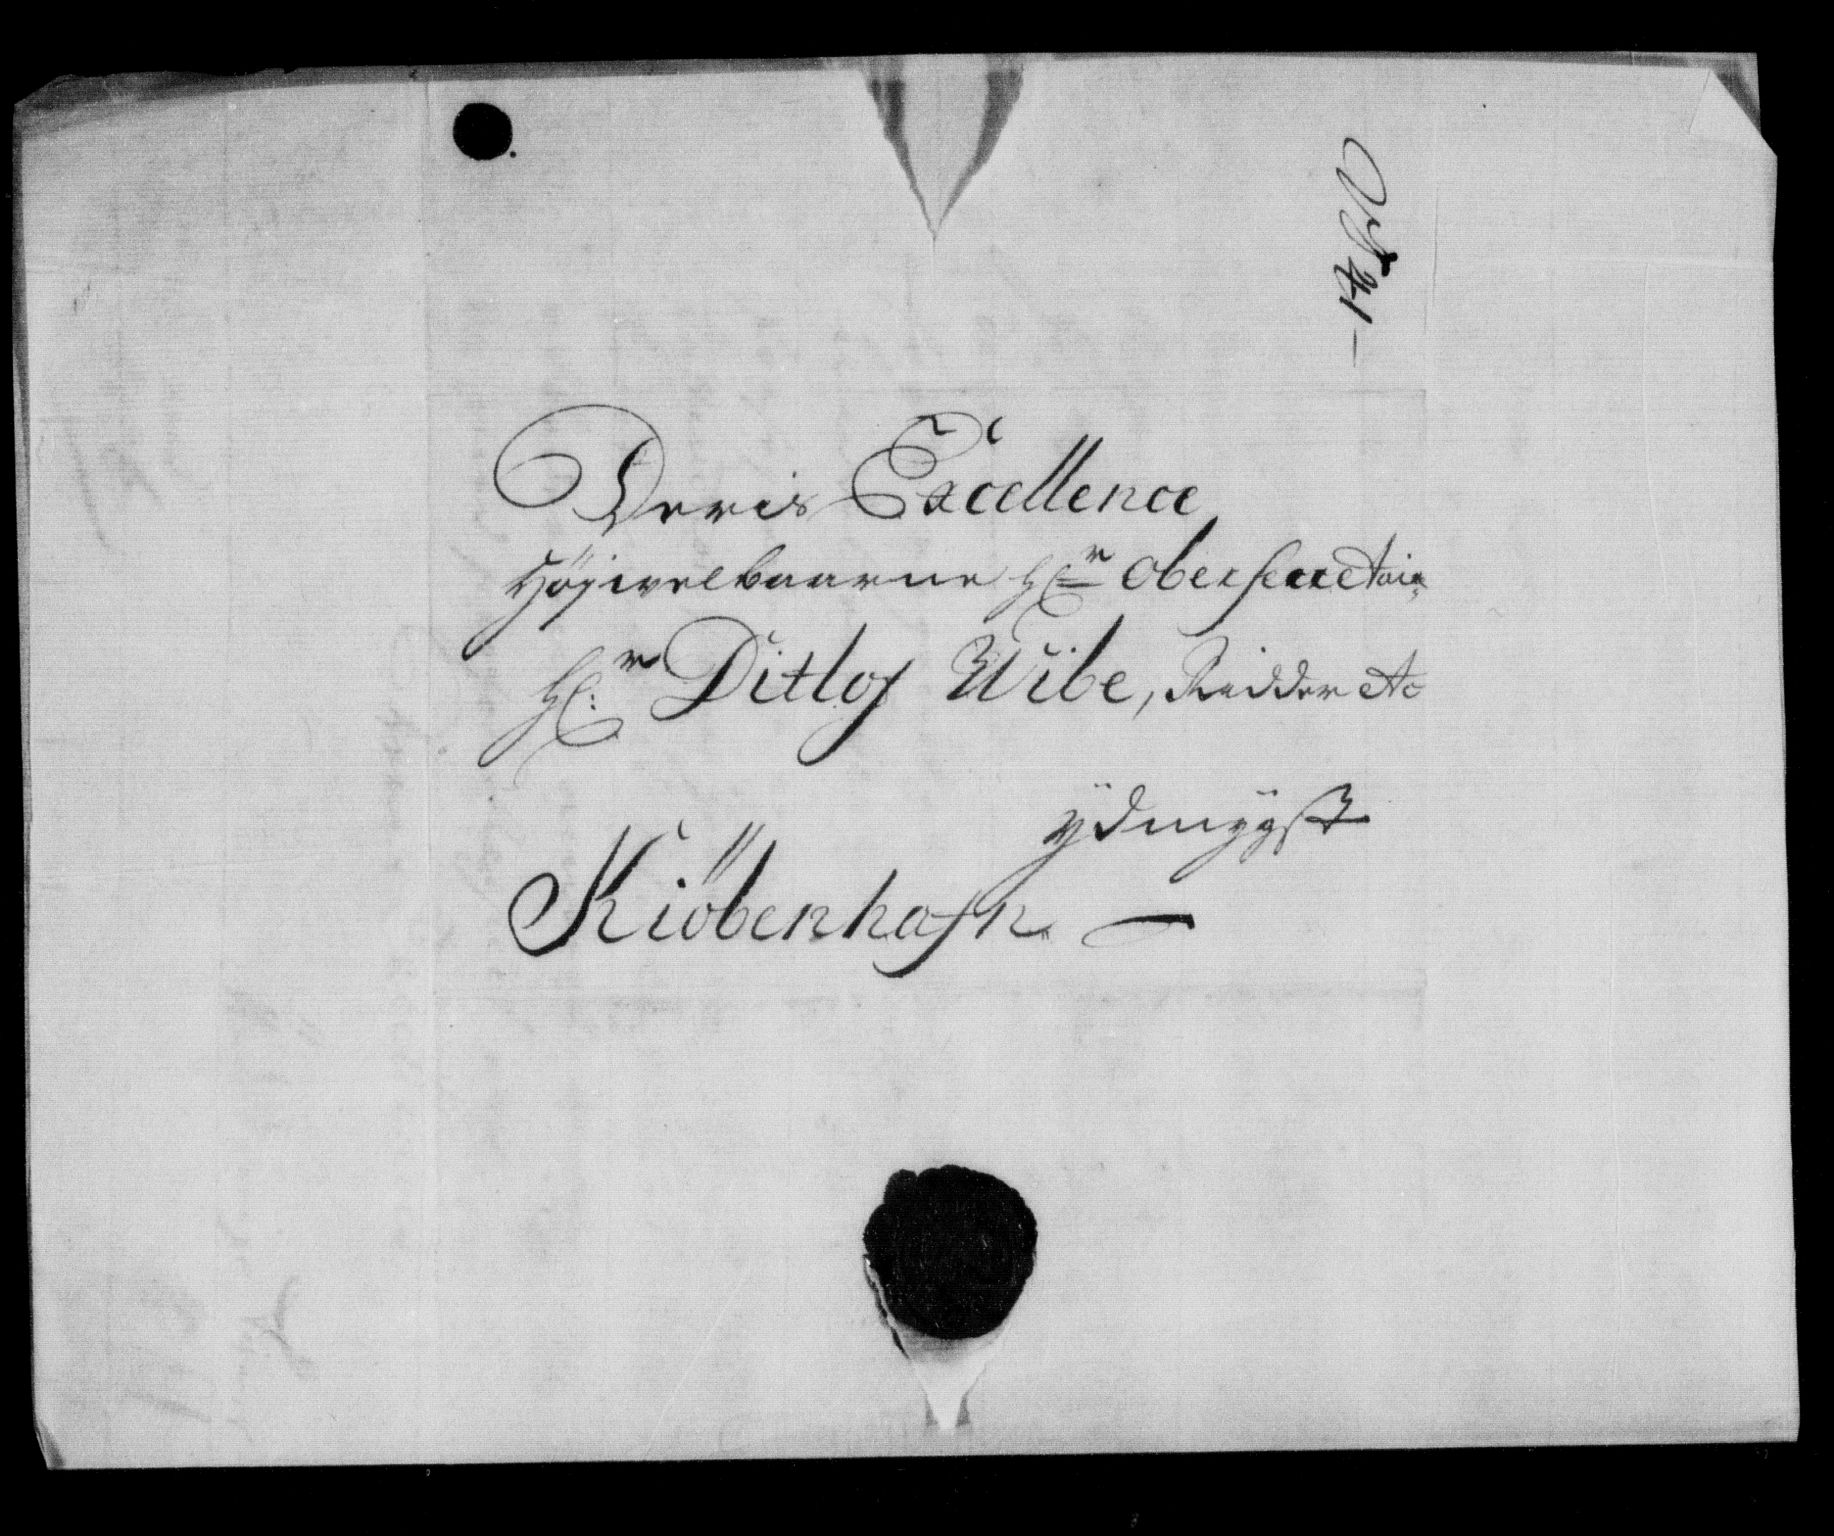 Deris Excellence
Höjvelbaarne Hr Obersecretair
Hr: Ditlof Wibe, Ridder etc
ydmygst
Kiöbenhafn